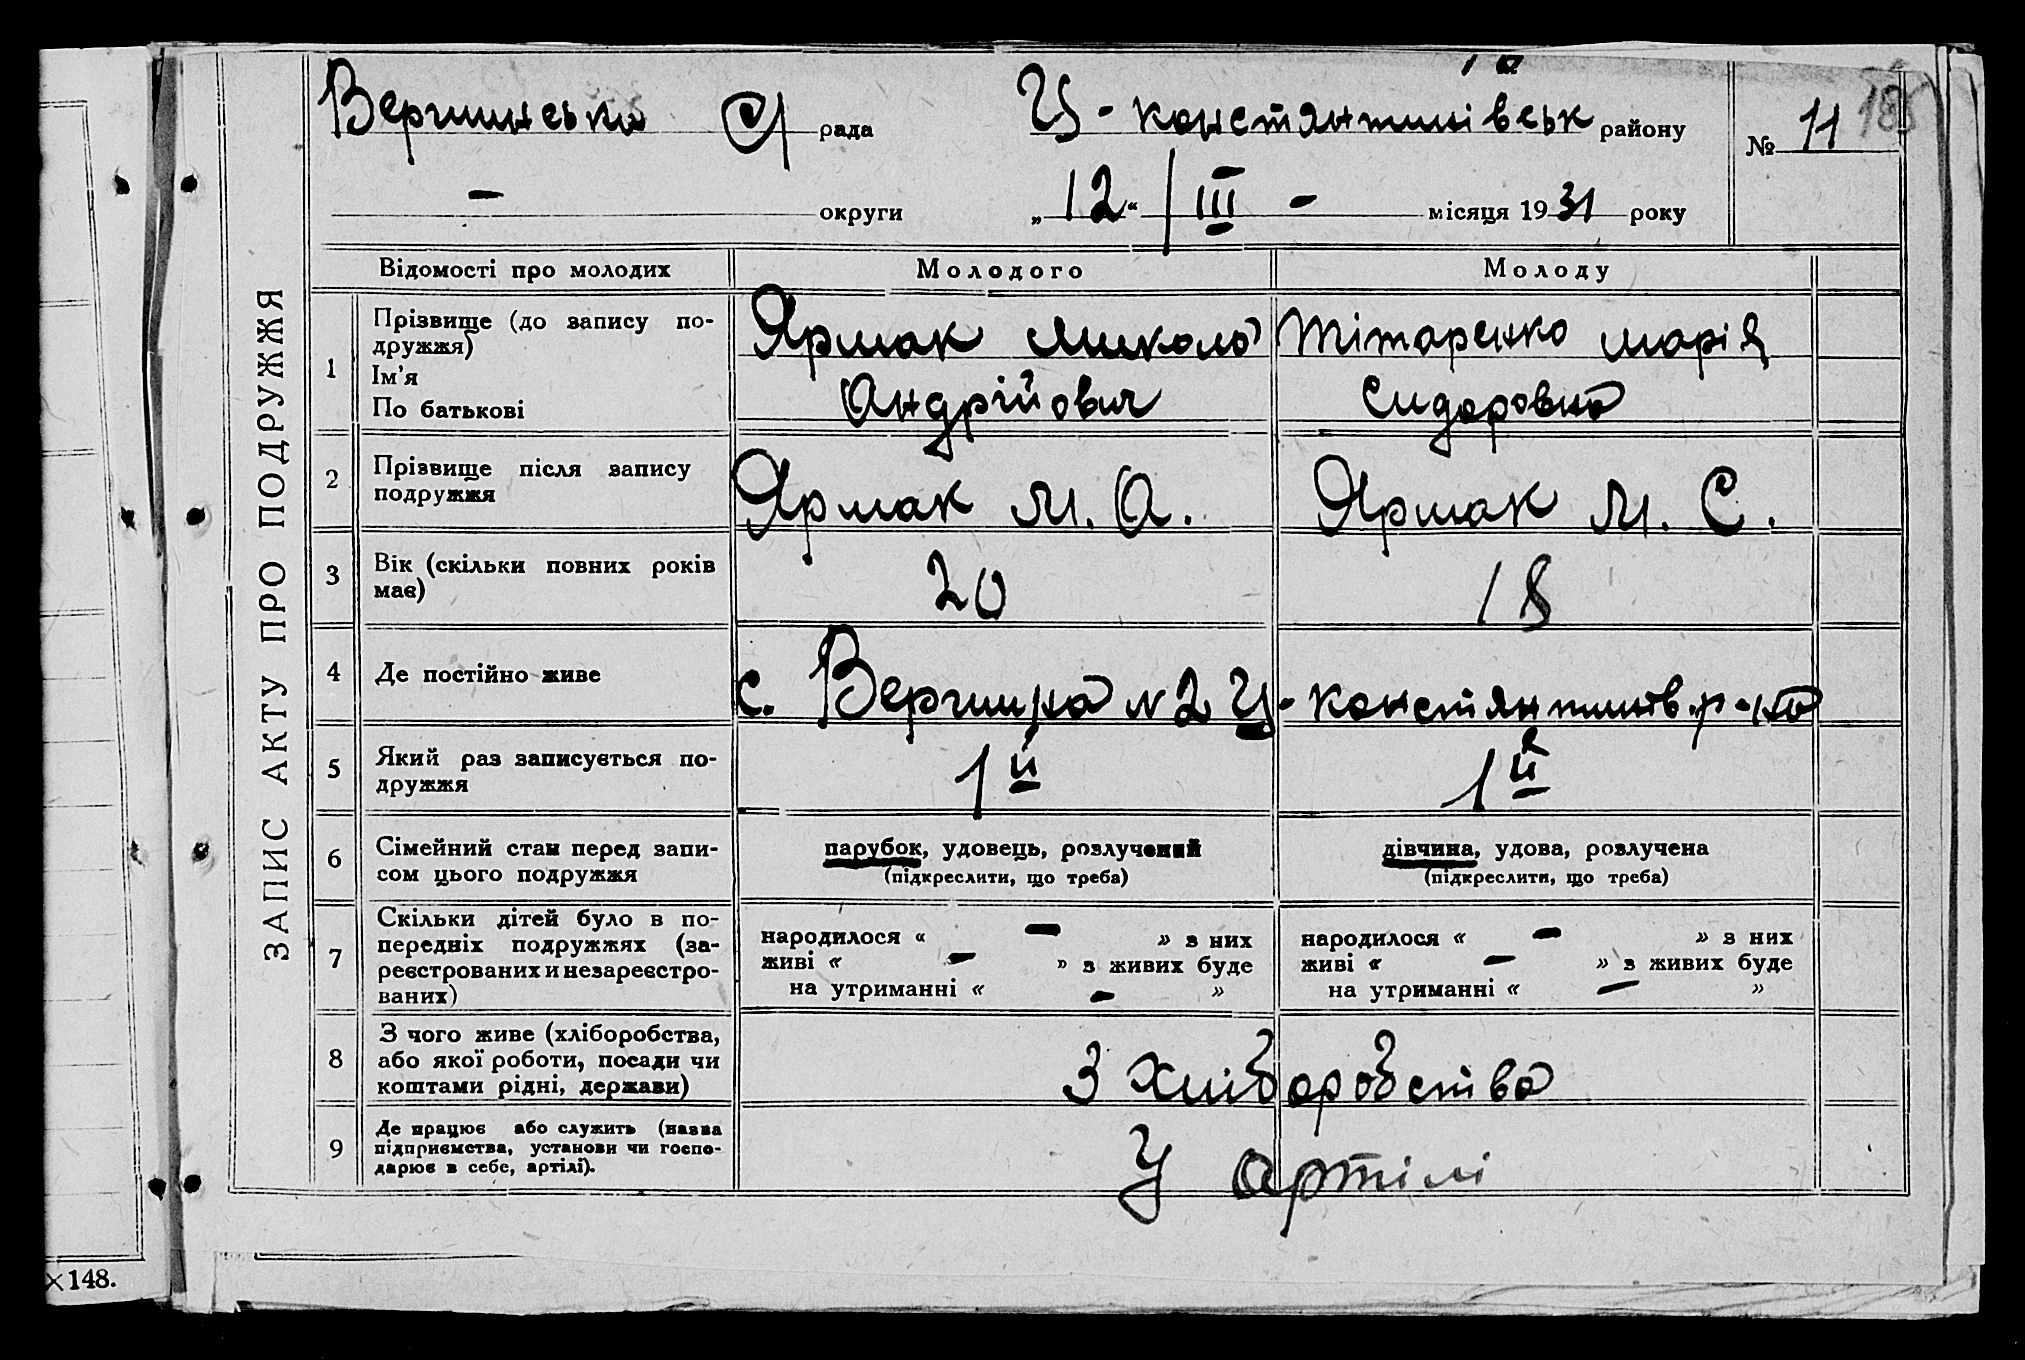 185
Вергинська С/ рада Ц-констянтинівськ району № 11
- округи „12“ / III - місяця 1931 року
ЗАПИС АКТУ ПРО ПОДРУЖЖЯ
Відомості про молодих Молодого Молоду
1 Прізвище (до запису по-
дружжя)
Ім'я
По батькові
Ярмак Микола
Андрійович
Тітаренко Марія
Сидоровна
2 Прізвище після запису
подружжя
Ярмак М. А.
Ярмак М. С.
3 Вік (скільки повних років
має)
20
18
4 Де постійно живе
с. Вергина №2 Ц-констянтинів. р-на
5 Який раз записується по-
дружжя
1й
1й
6 Сімейний стан перед запи-
сом цього подружжя
парубок, удовець, розлучений
(підкреслити, що треба)
дівчина, удова, розлучена
(підкреслити, що треба)
7 Скільки дітей було в по-
передніх подружжях (за-
реєстрованих и незареєстро-
ваних)
народилося « - » з них
живі « - » з живих буде
на утриманні « - »
народилося « - » з них
живі « - » з живих буде
на утриманні « - »
8 З чого живе (хліборобства,
або якої роботи, посади чи
коштами рідні, держави)
З хліборобства
9 Де працює або служить (назва
підприємства, установи чи госпо-
дарює в себе, артілі).
У артілі
×148.